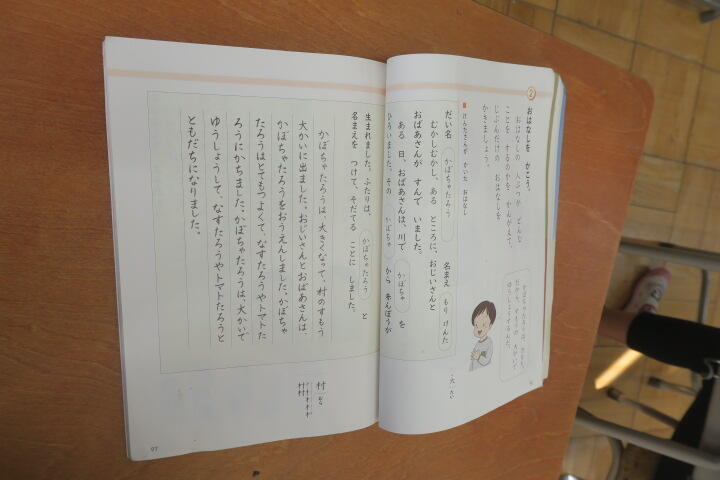 ② おはなしを かこう。
おはなしの 人ぶつが、どんな
ことを するのかを かんがえて、
じぶんだけの おはなしを
かきましょう。
■ けんたさんが かいた おはなし
かぼちゃたろうは、
だい名 かぼちゃたろう 名まえ もり けんた
むかしむかし、ある ところに、おじいさんと
おばあさんが すんで いました。
ある 日、おばあさんは、川で かぼちゃ を
ひろいました。その かぼちゃ から 赤んぼうが
生まれました。ふたりは、かぼちゃたろう と
名まえを つけて、そだてる ことに しました。
かぼちゃたろうは、大きくなって、村のすもう
大かいに出ました。おじいさんとおばあさんは、
かぼちゃたろうをおうえんしました。かぼちゃ
たろうはとてもつよくて、なすたろうやトマトた
ろうにかちました。かぼちゃたろうは、大かいで
ゆうしょうして、なすたろうやトマトたろうと
ともだちになりました。
村 むら
97